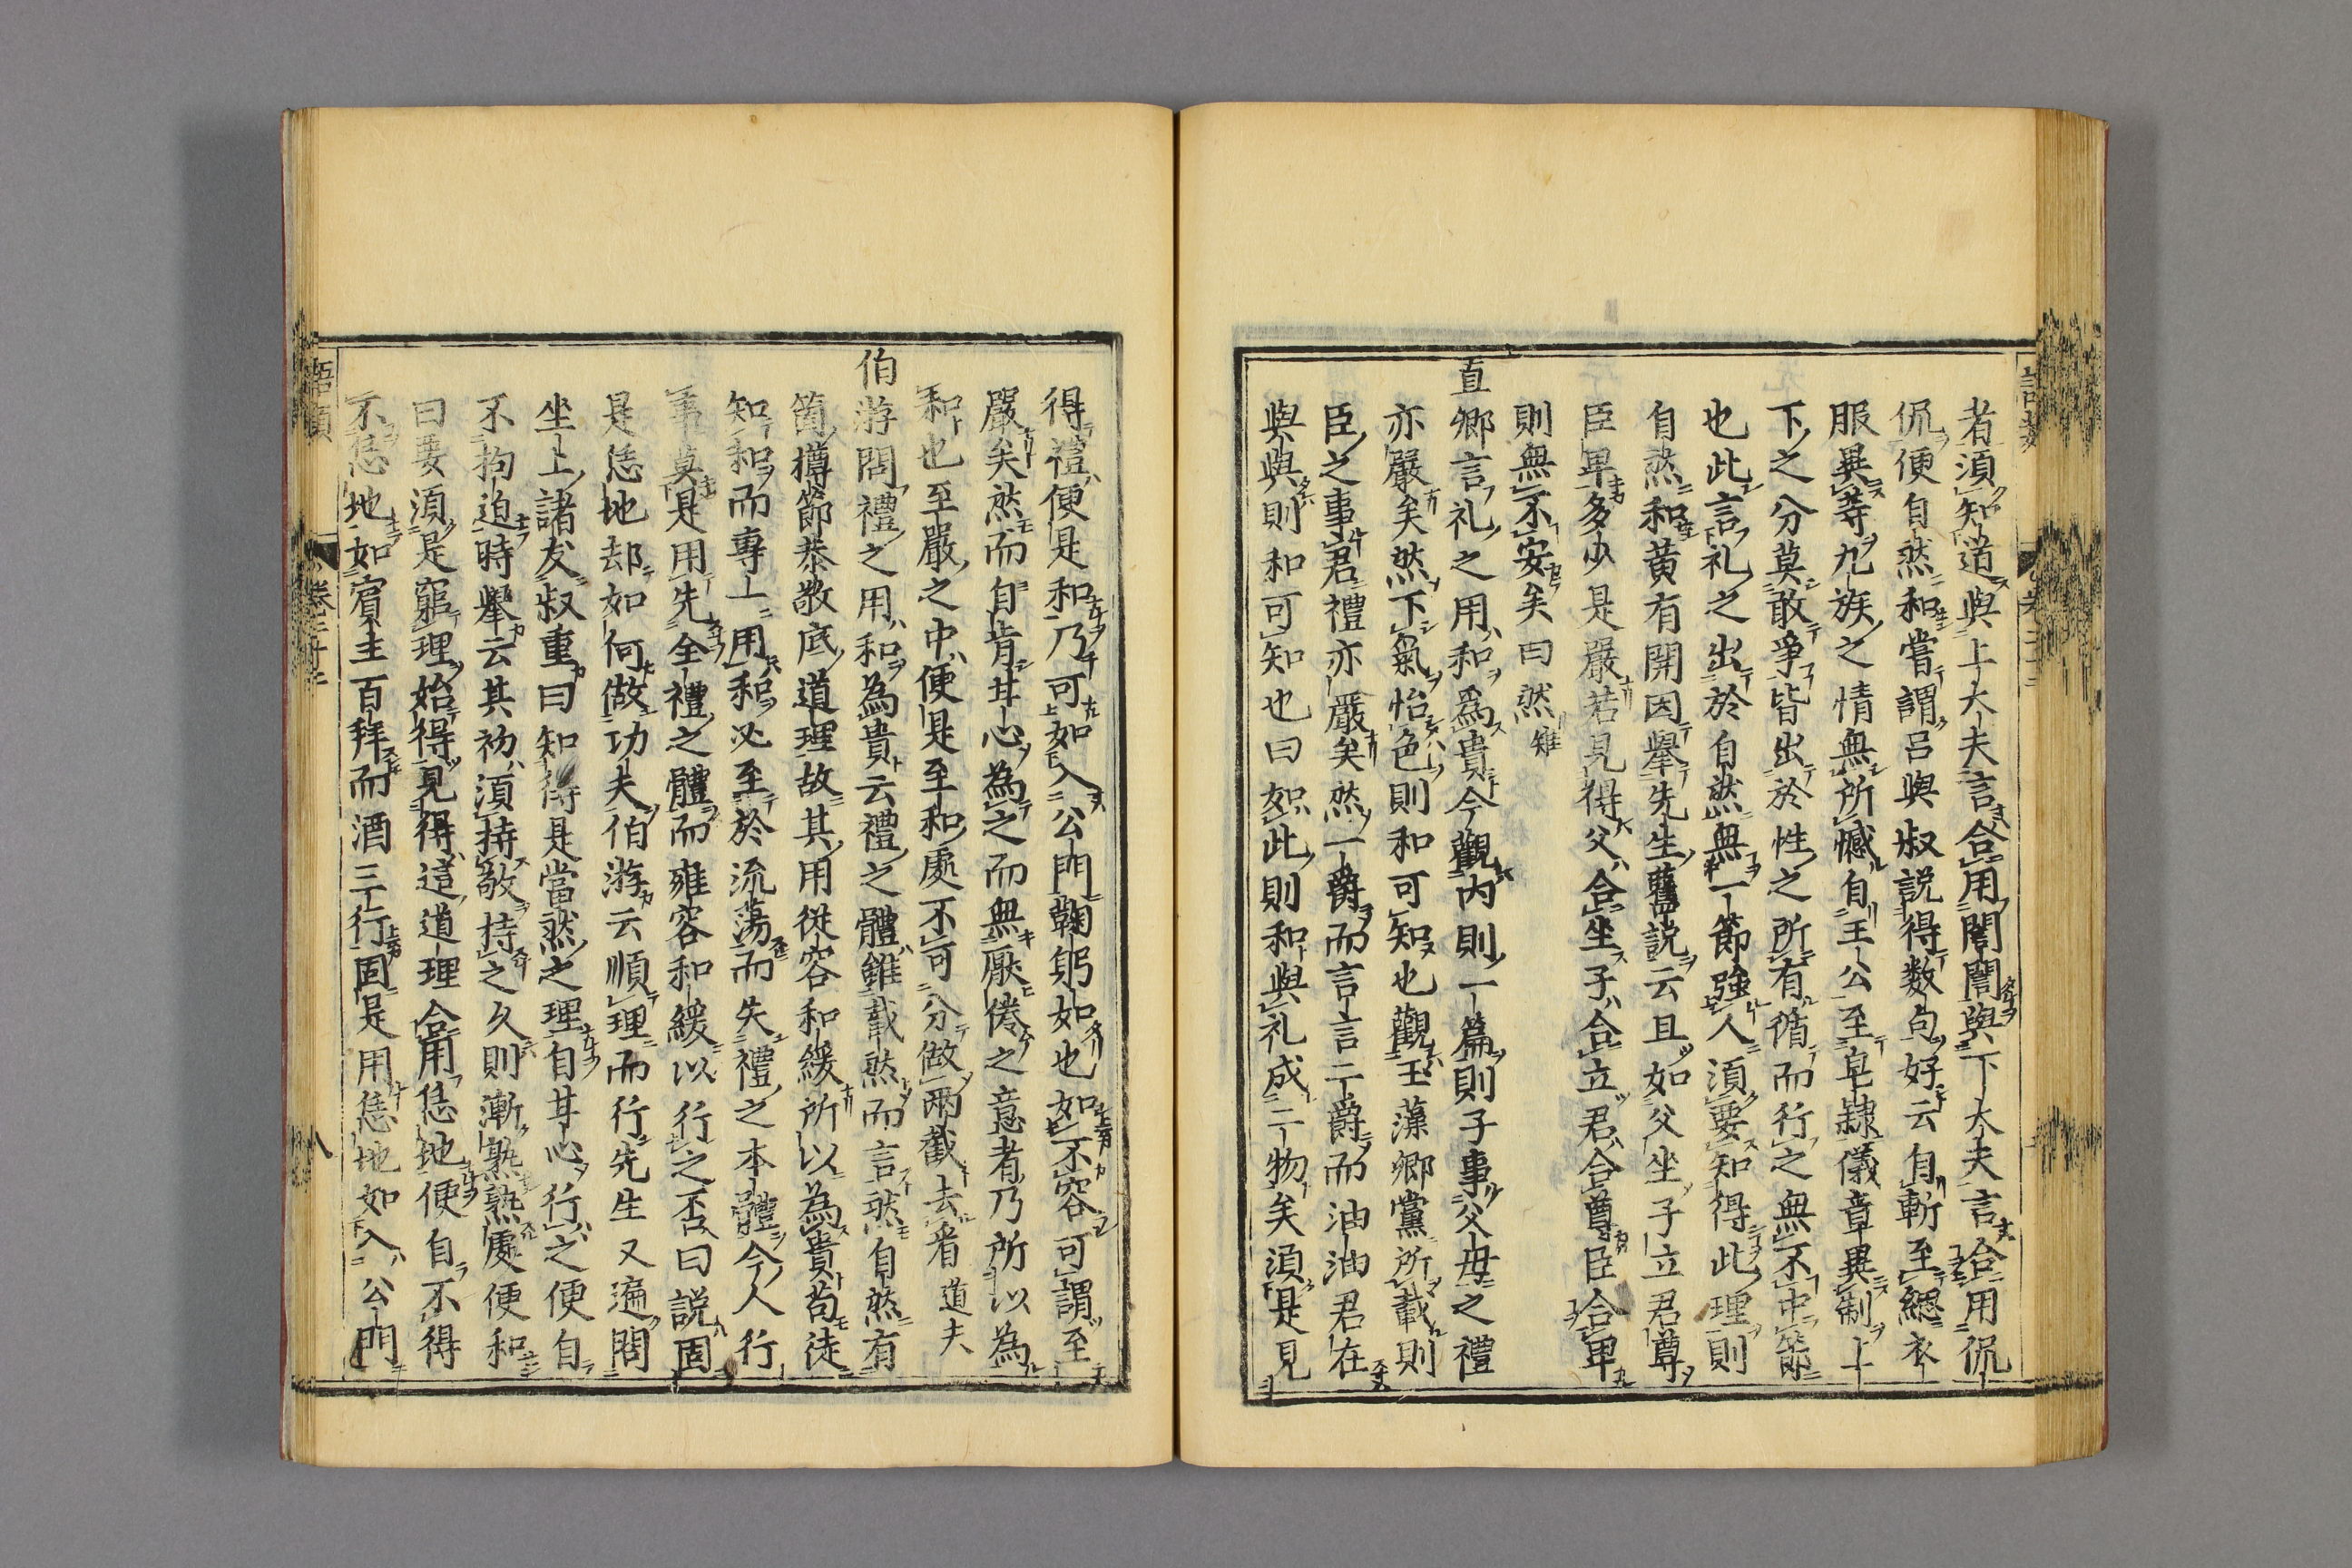 者須知道與上大夫言合用誾誾與下大夫言合用侃
侃便自然和嘗謂呂與叔説得数句好云自斬至緦衣
服異等九族之情無所憾自王公至皂隷儀章異制上
下之分莫敢爭皆出於性之所有循而行之無不中節
也此言礼之出於自然無一節強人須要知得此理則
自然和黄有開因舉先生舊説云且如父坐子立君尊
臣卑多少是嚴若見得父合坐子合立君合尊臣合卑
則無不安矣曰然雉
直卿言礼之用和爲貴今觀内則一篇則子事父母之禮
亦嚴矣然下氣怡色則和可知也觀玉藻郷黨所載則
臣之事君禮亦嚴矣然一爵而言言二爵而油油君在
與與則和可知也曰如此則和與礼成二物矣須是見
得禮便是和乃可如入公門鞠躬如也如不容可謂至
嚴矣然而自肯甘心為之而無厭倦之意者乃所以為
和也至嚴之中便是至和處不可分做兩截去看道夫
伯游問禮之用和為貴云禮之體雖截然而言然自然有
箇撙節恭敬底道理故其用從容和緩所以為貴苟徒
知和而專上用和必至於流蕩而失禮之本體今人行
事莫是用先全禮之體而雍容和緩以行之否曰説固
是恁地却如何做功夫伯游云順理而行先生又遍問
坐上諸友叔重曰知得是當然之理自甘心行之便自
不拘迫時舉云其初須持敬持之久則漸熟熟處便和
曰要須是窮理始得見得這道理合用恁地便自不得
不恁地如賓主百拜而酒三行固是用恁地如入公門
語類
卷二十二
八